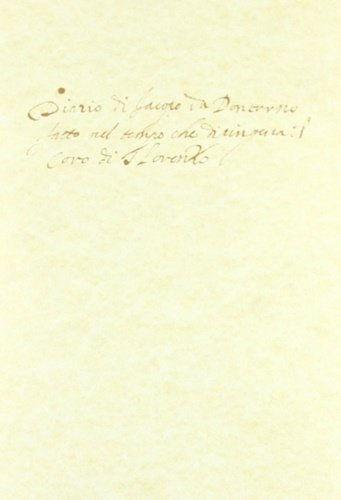 Diario di Jacopo da Pontormo
fatto nel tempo che dipingeva il
Coro di S Lorenzo